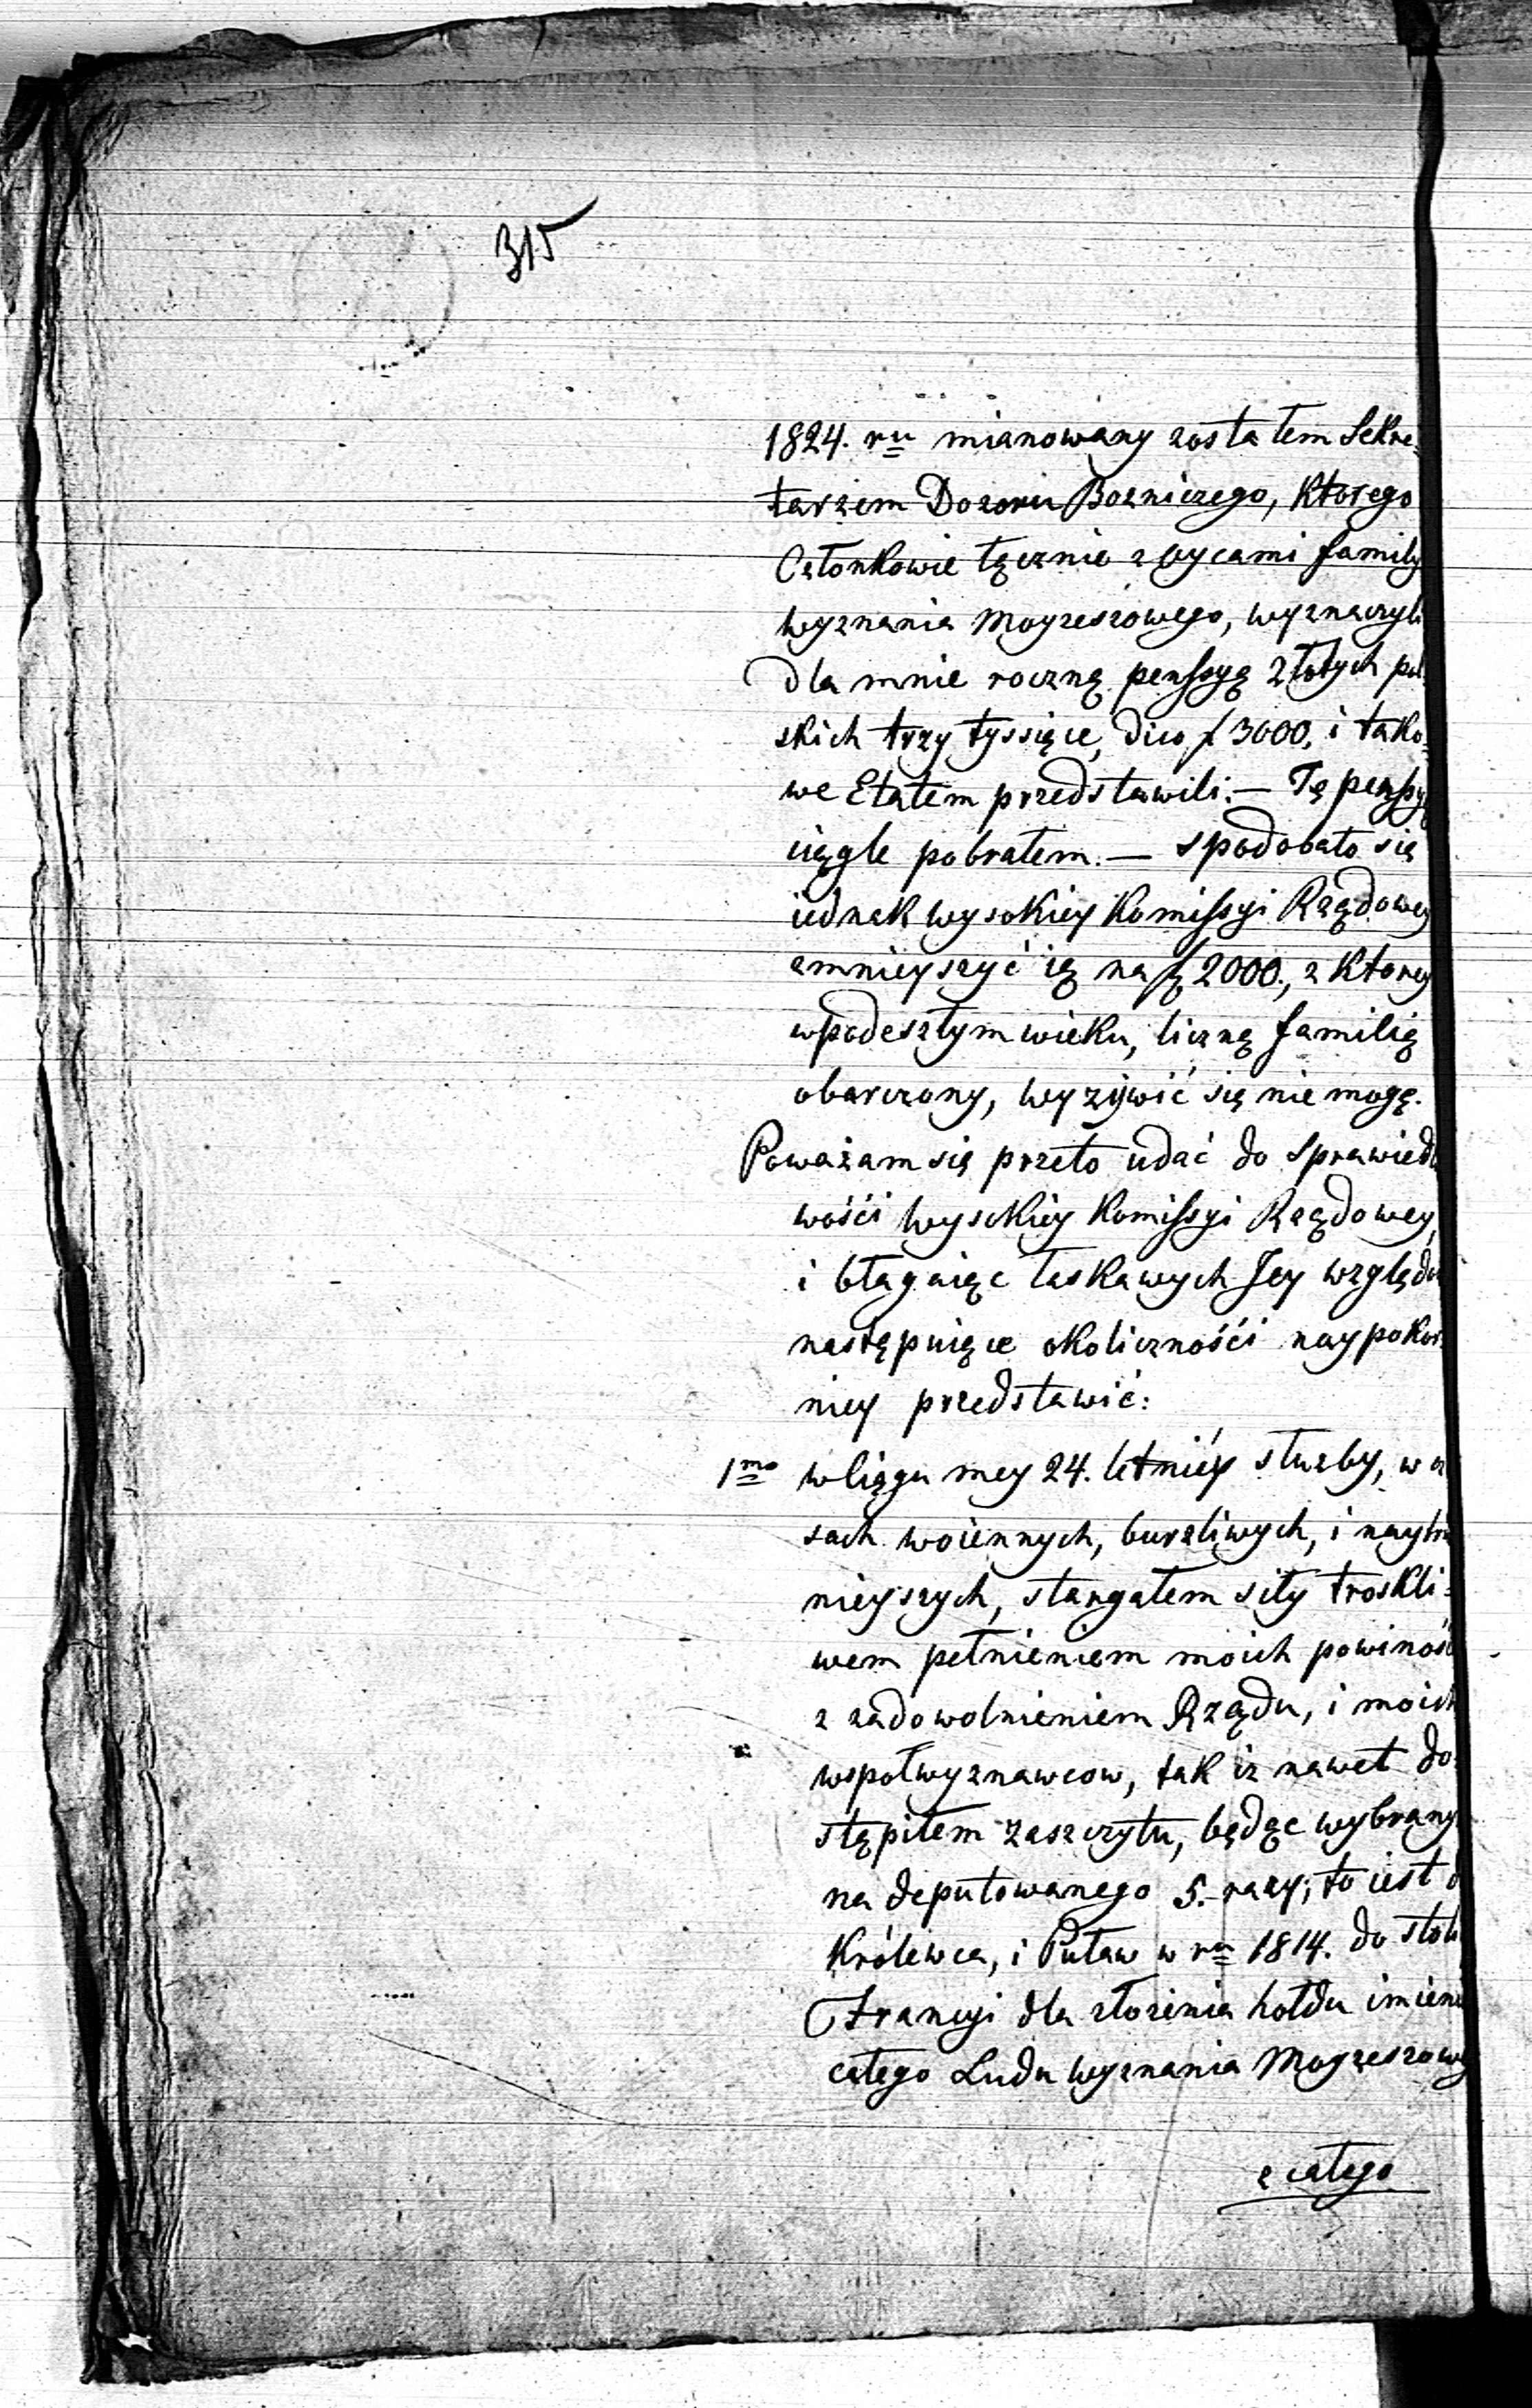 315
1824. ru mianowany zostałem Sekre-
tarzem Dozoru Bozniczego, Ktorego
Członkowie łącznie z Oycami familij
wyznania Moyzeszowego, wyznaczyli
dla mnie roczną penssyą złotych pol-
skich trzy tyssiące, dico f 3000, i tako-
we Etatem przedstawili. — Tę penssyą
ciągle pobrałem. — spodobało się
iednak wysokiey Komissyi Rządowey
zmnieyszyć ią na f 2000., z Ktorey
w podeszłym wieku, liczną familią
obarczony, wyzywić się nie mogę.
Poważam się przeto udać do Sprawiedli
wości wysokiey Komissyi Rządowey,
i błagaiąc łaskawych Jey względów
następuiące okoliczności naypokor-
niey przedstawić:
1mo w ciągu mey 24. letniéy służby, w cza
sach woiennych, burzliwych, i naytru
nieyszych, stargałem siły troskli-
wem pełnieniem moich powinośc
z zadowolnieniem Rządu, i moich
wspołwyznawcow, tak iz nawet do-
stąpiłem zaszczytu, będąc wybrany
na deputowanego 5. razy; to iest d
Królewca, i Puław w ru 1814. do stoli
Francyi dla złożenia hołdu imieni
całego Ludu wyznania Moyzeszowe
z całego